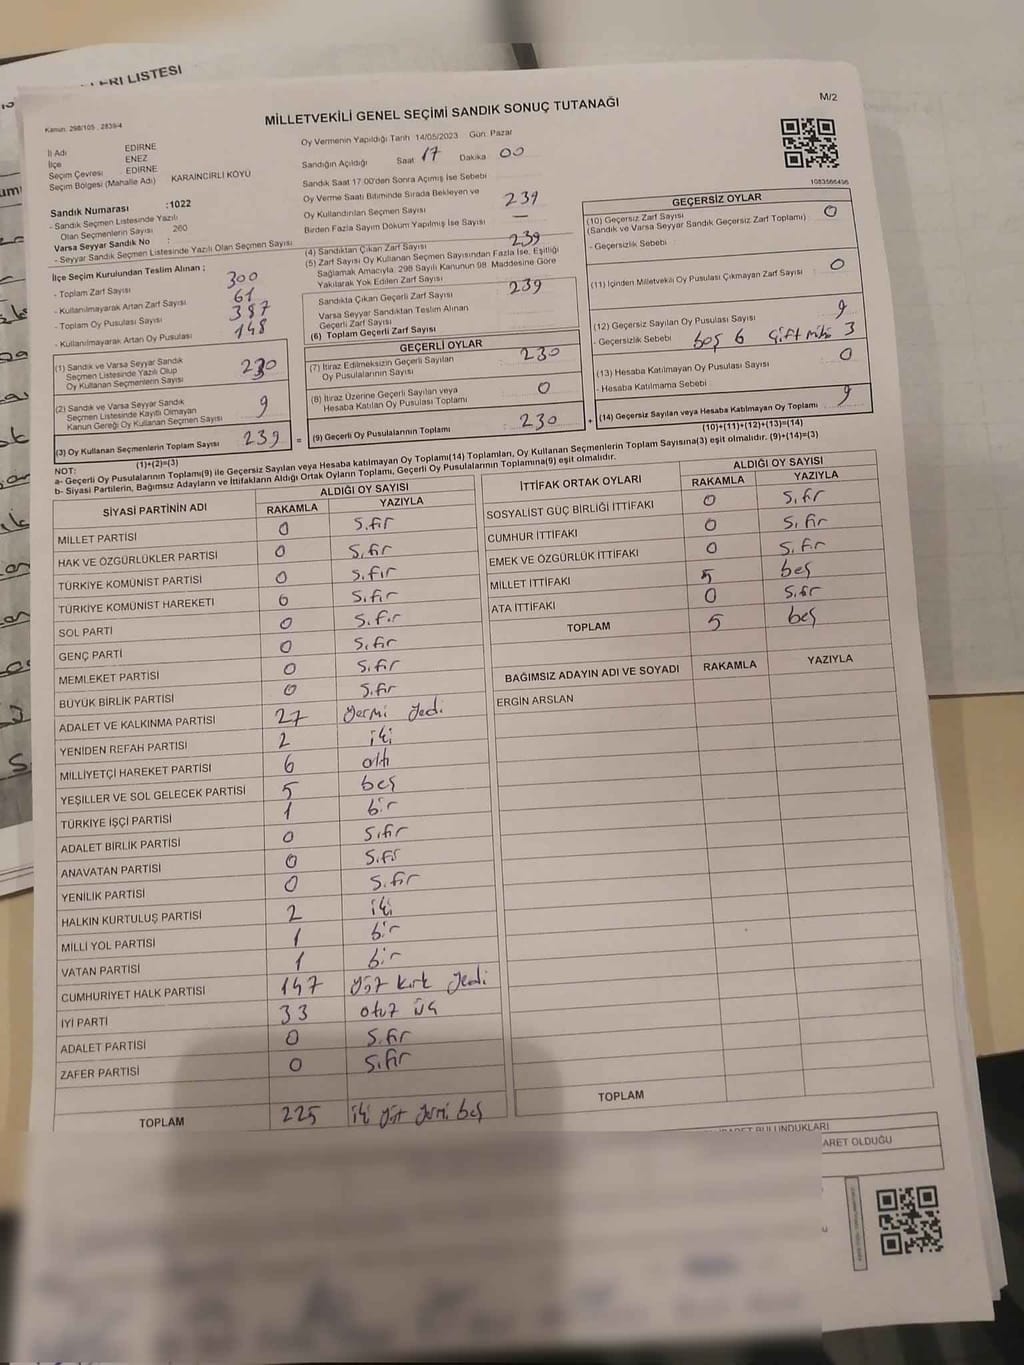 ERİ LİSTESİ
MİLLETVEKİLİ GENEL SEÇİMİ SANDIK SONUÇ TUTANAĞI
M/2
Kanun: 298/105 , 2839/4
İl Adı EDİRNE
İlçe ENEZ
Seçim Çevresi EDİRNE
Seçim Bölgesi (Mahalle Adı) KARAİNCİRLİ KÖYÜ
Sandık Numarası :1022
- Sandık Seçmen Listesinde Yazılı
Olan Seçmenlerin Sayısı 260
Varsa Seyyar Sandık No :
- Seyyar Sandık Seçmen Listesinde Yazılı Olan Seçmen Sayısı
İlçe Seçim Kurulundan Teslim Alınan ;
- Toplam Zarf Sayısı 300
- Kullanılmayarak Artan Zarf Sayısı 61
- Toplam Oy Pusulası Sayısı 387
- Kullanılmayarak Artan Oy Pusulası 148
(1) Sandık ve Varsa Seyyar Sandık
Seçmen Listesinde Yazılı Olup
Oy Kullanan Seçmenlerin Sayısı 230
(2) Sandık ve Varsa Seyyar Sandık
Seçmen Listesinde Kayıtlı Olmayan
Kanun Gereği Oy Kullanan Seçmen Sayısı 9
(3) Oy Kullanan Seçmenlerin Toplam Sayısı 239 =
(1)+(2)=(3)
Oy Vermenin Yapıldığı Tarih 14/05/2023 Gün: Pazar
Sandığın Açıldığı Saat 17 Dakika 00
Sandık Saat 17:00'den Sonra Açımış İse Sebebi
Oy Verme Saati Bitiminde Sırada Bekleyen ve
Oy Kullandırılan Seçmen Sayısı 239
Birden Fazla Sayım Döküm Yapılmış İse Sayısı —
(4) Sandıktan Çıkan Zarf Sayısı 239
(5) Zarf Sayısı Oy Kullanan Seçmen Sayısından Fazla İse, Eşitliği
Sağlamak Amacıyla, 298 Sayılı Kanunun 98. Maddesine Göre
Yakılarak Yok Edilen Zarf Sayısı
Sandıkta Çıkan Geçerli Zarf Sayısı 239
Varsa Seyyar Sandıktan Teslim Alınan
Geçerli Zarf Sayısı
(6) Toplam Geçerli Zarf Sayısı
GEÇERLİ OYLAR
(7) İtiraz Edilmeksizin Geçerli Sayılan
Oy Pusulalarının Sayısı 230
(8) İtiraz Üzerine Geçerli Sayılan veya
Hesaba Katılan Oy Pusulası Toplamı 0
(9) Geçerli Oy Pusulalarının Toplamı : 230 +
1083566496
GEÇERSİZ OYLAR
(10) Geçersiz Zarf Sayısı
(Sandık ve Varsa Seyyar Sandık Geçersiz Zarf Toplamı) 0
- Geçersizlik Sebebi
(11) İçinden Milletvekili Oy Pusulası Çıkmayan Zarf Sayısı 0
(12) Geçersiz Sayılan Oy Pusulası Sayısı 9
- Geçersizlik Sebebi : boş 6 çift 3
(13) Hesaba Katılmayan Oy Pusulası Sayısı 0
- Hesaba Katılmama Sebebi
(14) Geçersiz Sayılan veya Hesaba Katılmayan Oy Toplamı 9
(10)+(11)+(12)+(13)=(14)
NOT:
a- Geçerli Oy Pusulalarının Toplamı(9) ile Geçersiz Sayılan veya Hesaba katılmayan Oy Toplamı(14) Toplamları, Oy Kullanan Seçmenlerin Toplam Sayısına(3) eşit olmalıdır. (9)+(14)=(3)
b- Siyasi Partilerin, Bağımsız Adayların ve İttifakların Aldığı Ortak Oyların Toplamı, Geçerli Oy Pusulalarının Toplamına(9) eşit olmalıdır.
SİYASİ PARTİNİN ADI ALDIĞI OY SAYISI
RAKAMLA YAZIYLA
MİLLET PARTİSİ 0 Sıfır
HAK VE ÖZGÜRLÜKLER PARTİSİ 0 Sıfır
TÜRKİYE KOMÜNİST PARTİSİ 0 Sıfır
TÜRKİYE KOMÜNİST HAREKETİ 0 Sıfır
SOL PARTİ 0 Sıfır
GENÇ PARTİ 0 Sıfır
MEMLEKET PARTİSİ 0 Sıfır
BÜYÜK BİRLİK PARTİSİ 0 Sıfır
ADALET VE KALKINMA PARTİSİ 27 Yermi Yedi
YENİDEN REFAH PARTİSİ 2 iki
MİLLİYETÇİ HAREKET PARTİSİ 6 altı
YEŞİLLER VE SOL GELECEK PARTİSİ 5 beş
TÜRKİYE İŞÇİ PARTİSİ 1 bir
ADALET BİRLİK PARTİSİ 0 Sıfır
ANAVATAN PARTİSİ 0 Sıfır
YENİLİK PARTİSİ 0 Sıfır
HALKIN KURTULUŞ PARTİSİ 2 iki
MİLLİ YOL PARTİSİ 1 bir
VATAN PARTİSİ 1 bir
CUMHURİYET HALK PARTİSİ 147 Yüz kırk Yedi
İYİ PARTİ 33 otuz üç
ADALET PARTİSİ 0 Sıfır
ZAFER PARTİSİ 0 Sıfır
TOPLAM 225 iki yüz yermi beş
İTTİFAK ORTAK OYLARI ALDIĞI OY SAYISI
RAKAMLA YAZIYLA
SOSYALİST GÜÇ BİRLİĞİ İTTİFAKI 0 Sıfır
CUMHUR İTTİFAKI 0 Sıfır
EMEK VE ÖZGÜRLÜK İTTİFAKI 0 Sıfır
MİLLET İTTİFAKI 5 beş
ATA İTTİFAKI 0 Sıfır
TOPLAM 5 beş
BAĞIMSIZ ADAYIN ADI VE SOYADI RAKAMLA YAZIYLA
ERGİN ARSLAN
TOPLAM
BULUNDUKLARI
ARET OLDUĞU